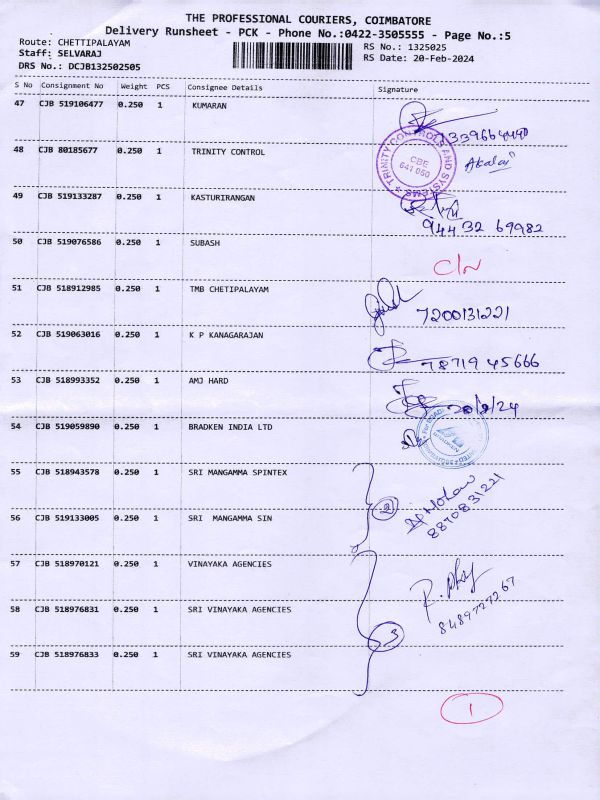 THE PROFESSIONAL COURIERS, COIMBATORE
Delivery Runsheet - PCK - Phone No.:0422-3505555 - Page No.:5
Route: CHETTIPALAYAM
RS No.: 1325025
Staff: SELVARAJ
RS Date: 20-Feb-2024
DRS No.: DCJB132502505
S No Consignment No Weight PCS Consignee Details Signature
47 CJB 519106477 0.250 1 KUMARAN
48 CJB 80185677 0.250 1 TRINITY CONTROL
TRINITY CONTROLS AND SYSTEMS
CBE
641 050
49 CJB 519133287 0.250 1 KASTURIRANGAN
94432 69982
50 CJB 519076586 0.250 1 SUBASH
51 CJB 518912985 0.250 1 TMB CHETIPALAYAM
7200131221
52 CJB 519063016 0.250 1 K P KANAGARAJAN
78719 45666
53 CJB 518993352 0.250 1 AMJ HARD
20/2/24
54 CJB 519059890 0.250 1 BRADKEN INDIA LTD
55 CJB 518943578 0.250 1 SRI MANGAMMA SPINTEX
2
8870831221
56 CJB 519133005 0.250 1 SRI MANGAMMA SIN
57 CJB 518970121 0.250 1 VINAYAKA AGENCIES
8489727267
58 CJB 518976831 0.250 1 SRI VINAYAKA AGENCIES
3
59 CJB 518976833 0.250 1 SRI VINAYAKA AGENCIES
1